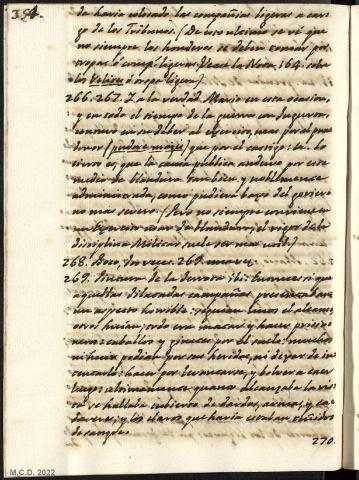 384.
da havia colocado las compañias ligeras a car-
go de los Tribunos. (De esto ultimo se vè que
no siempre los honderos se deben tomar por
tropas ligeras. Vease la Nota 164. sobre
los Velites ò tropa ligera.)
266. 267. Y a la verdad Mario en esta ocasion,
y en todo el tiempo de la guerra con Jugurta,
contuvo en su deber al exercito, mas por el pun-
donor (pudore magis) que por el castigo: lo
cierto es, que la causa publica anduvo por este
medio de blandura tan bien y noblemente
administrada, como pudiera bajo del govierno
mas severo. (Pero no siempre conviene en
un Exercito usar la blandura; el rigor de la
disciplina Militar suele ser mas util.)
268. Boco, dos veces. 268. una vez.
269. Pintura de la derrota ibi: Entonces sì que
aquellas dilatadas campañas presentaban
un aspecto horrible: seguian unos el alcance,
otros huian; todo era matar y hacer prisio-
neros: caballos y ginetes por el suelo: muchos
ni huir podian por sus heridas, ni dejar de in-
tentarlo: hacer por levantarse, y bolver a caer
luego: ultimamente quanto alcanzaba la vis-
ta se hallaba cubierto de dardos, armas, y ca-
daveres; y los claros que havia estaban teñidos
de sangre.
270.
M.C.D. 2022